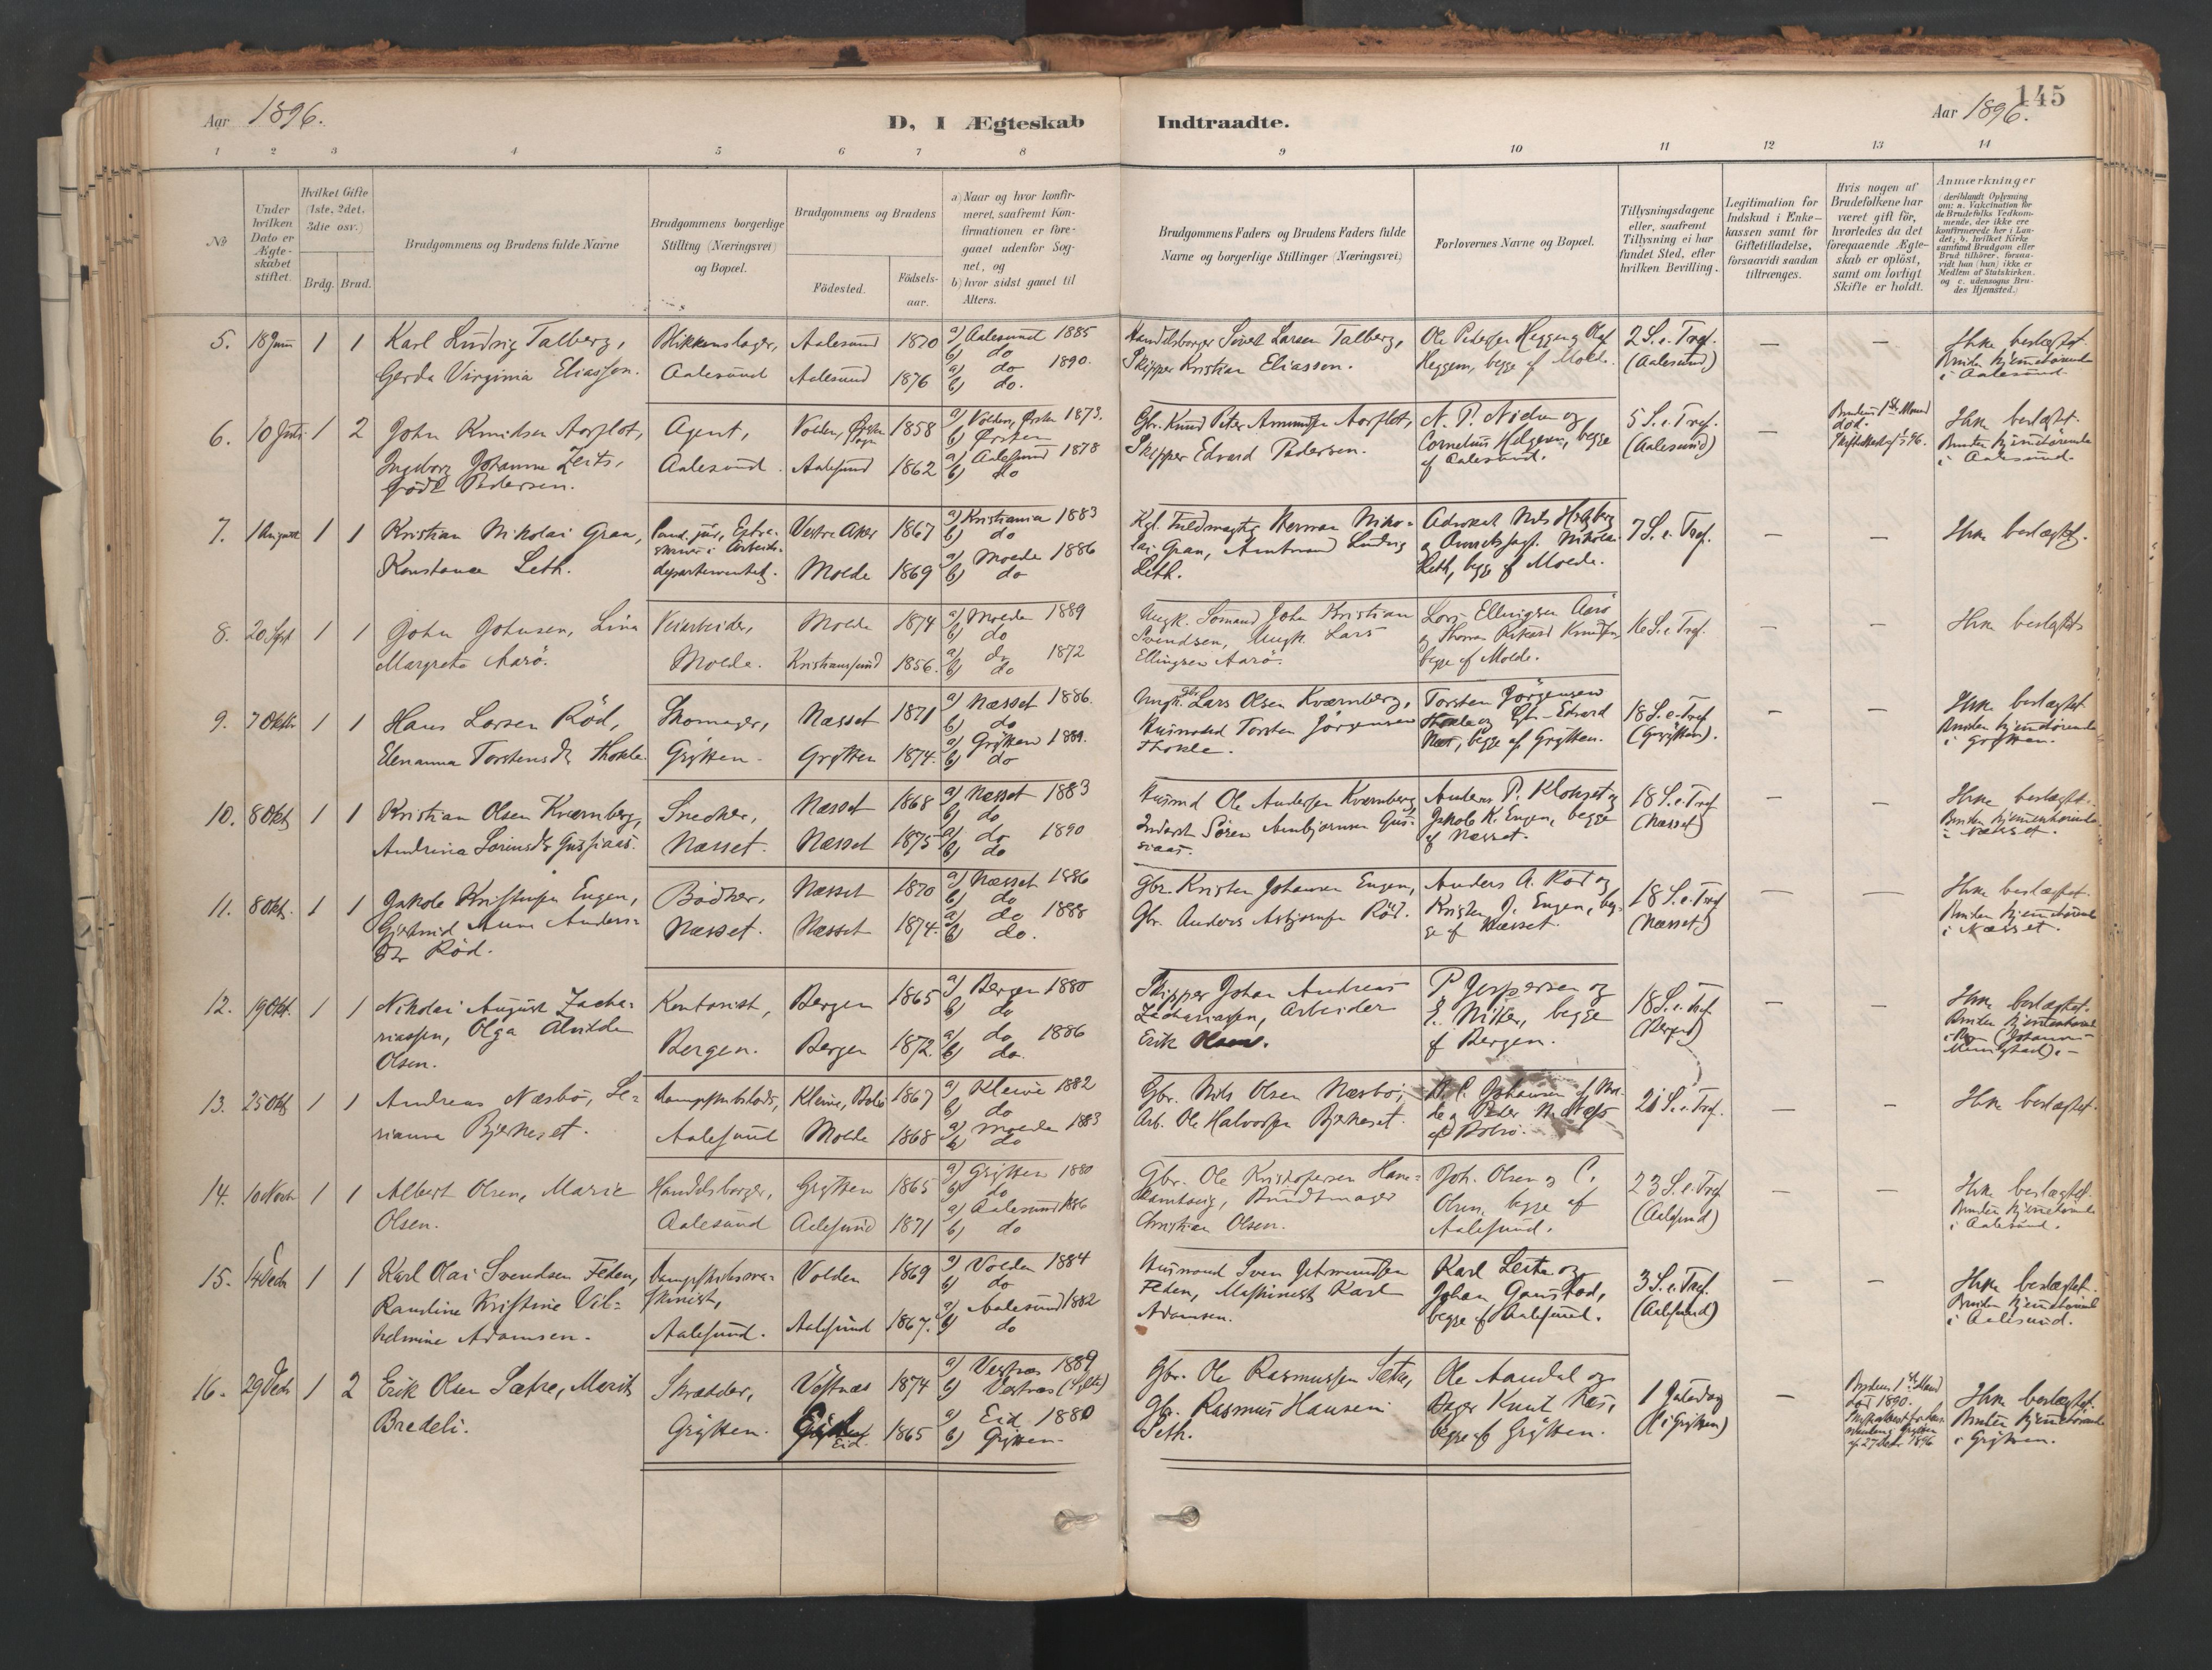 145
Aar 1896.
D, I Ægteskab
Indtraadte.
Aar 1896.
1 2 3 4 5 6 7 8 9 10 11 12 13 14
No
Under hvilken Dato er Ægteskabet stiftet.
Hvilket Gifte (1ste, 2det, 3die osv.)
Brdg. Brud.
Brudgommens og Brudens fulde Navne
Brudgommens borgerlige Stilling (Næringsvei) og Bopæl.
Brudgommens og Brudens
Födested.
Födsels-aar.
a) Naar og hvor konfirmeret, saafremt Konfirmationen er foregaaet udenfor Sognet, og
b) hvor sidst gaaet til Alters.
Brudgommens Faders og Brudens Faders fulde Navne og borgerlige Stillinger (Næringsvei)
Forlovernes Navne og Bopæl.
Tillysningsdagene eller, saafremt Tillysning ei har fundet Sted, efter hvilken Bevilling.
Legitimation for Indskud i Enkekassen samt for Giftetilladelse, forsaavidt saadan tiltrænges.
Hvis nogen af Brudefolkene har været gift för, hvorledes da det foregaaende Ægteskab er oplöst, samt om lovligt Skifte er holdt.
Anmærkninger
(deriblandt Oplysning om: a. Vakcination for de Brudefolks Vedkommende, der ikke ere konfirmerede her i Landet; b. hvilket Kirkesamfund Brudgom eller Brud tilhörer, forsaavidt han (hun) ikke er Medlem af Statskirken, og c. udensogns Brudes Hjemsted.)
5. 18 Juni 1 1
Karl Ludvig Talberg,
Gerda Virginia Eliassen.
Blikkenslager,
Aalesund
Aalesund 1870
Aalesund 1876
a) Aalesund 1885
b) do
a) do 1890.
b) do.
Handelsborger Sivert Larsen Talberg,
Skipper Kristian Eliassen.
Ole Pedersen Heggem og Olaf
Heggem, begge af Molde.
2 S. e. Tref.
(Aalesund)
— —
Ikke beslægtet.
Bruden hjemmehörende
i Aalesund.
6. 10 Juli 1 2
John Knudsen Aarflot,
Ingeborg Johanne Zeits,
född Pedersen.
Agent,
Aalesund.
Volden, Ørsten Sogn 1858
Aalesund 1862
a) Volden, Ørsten 1873.
b) Ørsten
a) Aalesund 1878
b) do
Gbr. Knud Peter Amundsen Aarflot,
Skipper Edvard Pedersen.
N. P. Nielsen og
Cornelius Helgesen, begge
af Aalesund.
5 S. e. Tref.
(Aalesund)
—
Brudens 1ste Mand
död.
Ikke beslægt.
Bruden hjemmehörende
i Aalesund.
7. 1 August 1 1
Kristian Nikolai Gran,
Konstance Leth.
Cand. jur., Extra-
skriver i Arbeids-
departementet.
Vestre Aker 1867
Molde 1869
a) Kristiania 1883
b) do
a) Molde 1886
b) do
Kgl. Fuldmægtig Herman Niko-
lai Gran, Amtmand Ludvig
Leth.
Advokat Nils
Leth, begge af Molde.
7 S. e. Tref.
— —
Ikke beslægtet.
8. 20 Sept 1 1
John Johnsen, Lina
Margrete Aarö.
Veiarbeider,
Molde.
Molde 1874
Kristianssund 1856.
a) Molde 1889
b) do
a) do 1872
b) do
Ungk. Sömand John Kristian
Svendsen, Ungk. Lars
Ellingsen Aarö.
Lars Ellingsen Aarö
og Thomas Rikard Knudsen,
begge af Molde.
16 S. e. Tref.
— —
Ikke beslægtet
9. 7 Oktbr. 1 1
Hans Larsen Röd,
Elenanna Torstensdtr. Thokle.
Skomager,
Grytten.
Næsset 1871
Grytten 1874.
a) Næsset 1886.
b) do
a) Grytten 1889.
b) do
Ungk. Gbr. Lars Olsen Kværnberg,
Husmand Torsten Jörgensen
Thokle.
Torsten Jörgensen
Thokle og Gbr. Edvard
Næs, begge af Grytten.
18 S. e. Tref
(Grytten).
— —
Ikke beslægtet
Bruden hjemmehörende
i Grytten.
10. 8 Okt 1 1
Kristian Olsen Kværnberg,
Andrina Sörensdtr Gussiaas.
Snedker,
Næsset.
Næsset 1868
Næsset 1875
a) Næsset 1883
b) do
a) do 1890
b) do
Husmd Ole Andersen Kværnberg,
Inderst Sören Arnbjörnsen Gus-
siaas.
Anders P. Klonget og
Jakob K. Engen, begge
af Næsset.
18 S. e. Tref
(Næsset)
— —
Ikke beslægtet.
Bruden hjemmehörende
i Næsset.
11. 8 Okt. 1 1
Jakob Kristensen Engen,
Gjertrud Anne Anders-
dtr Röd.
Bödker,
Næsset.
Næsset 1870
Næsset 1874.
a) Næsset 1886
b) do
a) do 1888
b) do.
Gbr. Kristen Johansen Engen,
Gbr. Anders Asbjörnsen Röd.
Anders A. Röd og
Kristen J. Engen, beg-
ge af Næsset.
18 S. e. Tref
(Næsset)
— —
Ikke beslægtet.
Bruden hjemmehörende
i Næsset.
12. 19 Okt. 1 1
Nikolai August Zacha-
riassen, Olga Alvilde
Olsen.
Kontorist,
Bergen.
Bergen 1865
Bergen 1872
a) Bergen 1880
b) do
a) do 1886
b) do.
Skipper Johan Andreas
Zachariassen, Arbeider
Erik Olsen.
P. Jespersen og
E. Nitter, begge
af Bergen.
18 S. e. Tref.
(Bergen)
— —
Ikke beslægtet.
Bruden hjemmehörende
i Bgn (Johannes
Menighed).
13. 25 Okt 1 1
Andreas Næsbö, Se-
rianna Bjerkeset.
Aalesund
Kleive, Bolsö 1867
Molde 1868
a) Kleive 1882
b) do
a) Molde 1883
b) do
Gbr. Nils Olsen Næsbö,
Arb. Ole Halvorsen Bjerkeset.
Johansen af Mol-
de og Peder Næss
af Bolsö.
21 S. e. Tref.
— —
Ikke beslægtet.
14. 10 Novbr 1 1
Albert Olsen, Marie
Olsen.
Handelsborger,
Aalesund
Grytten 1865
Aalesund 1871
a) Grytten 1880
b) do
a) Aalesund 1886
b) do
Gbr. Ole Kristofersen Hane-
kamhaug, Bundtmager
Christian Olsen.
Joh. Olsen og C.
Olsen, begge af
Aalesund.
23 S. e. Tref
(Aalesund)
— —
Ikke beslægtet.
Bruden hjemmehörende
i Aalesund.
15. 14 Decbr 1 1
Karl Olai Svendsen Feden,
Randine Kristine Vil-
helmine Adamsen.
Dampskibsma-
skinist,
Aalesund.
Volden 1869
Aalesund 1867.
a) Volden 1884
b) do
a) Aalesund 1882
b) do
Husmand Sven Jetmundsen
Feden, Maskinist Karl
Adamsen.
Karl Leite og
Johan Gamstad,
begge af Aalesund.
3 S. e. Tref.
(Aalesund)
— —
Ikke beslægtet.
Bruden hjemmehörende
i Aalesund.
16. 29 Decbr 1 2
Erik Olsen Sætre, Marit
Bredeli.
Skrædder,
Grytten.
Vestnæs 1874
Eid. 1865
a) Vestnæs 1889
b) Vestnæs (Sylte)
a) Eid 1880
b) Grytten.
Gbr. Ole Rasmussen Sætre,
Gbr. Rasmus Hansen
Seth.
Ole Aandal og
Bager Knut Næs,
begge af Grytten.
1 Juledag
(i Grytten)
—
Brudens 1ste Mand
död 1890.
af 27 Decbr 1896
Ikke beslægtet.
Bruden hjemmehörende
i Grytten.